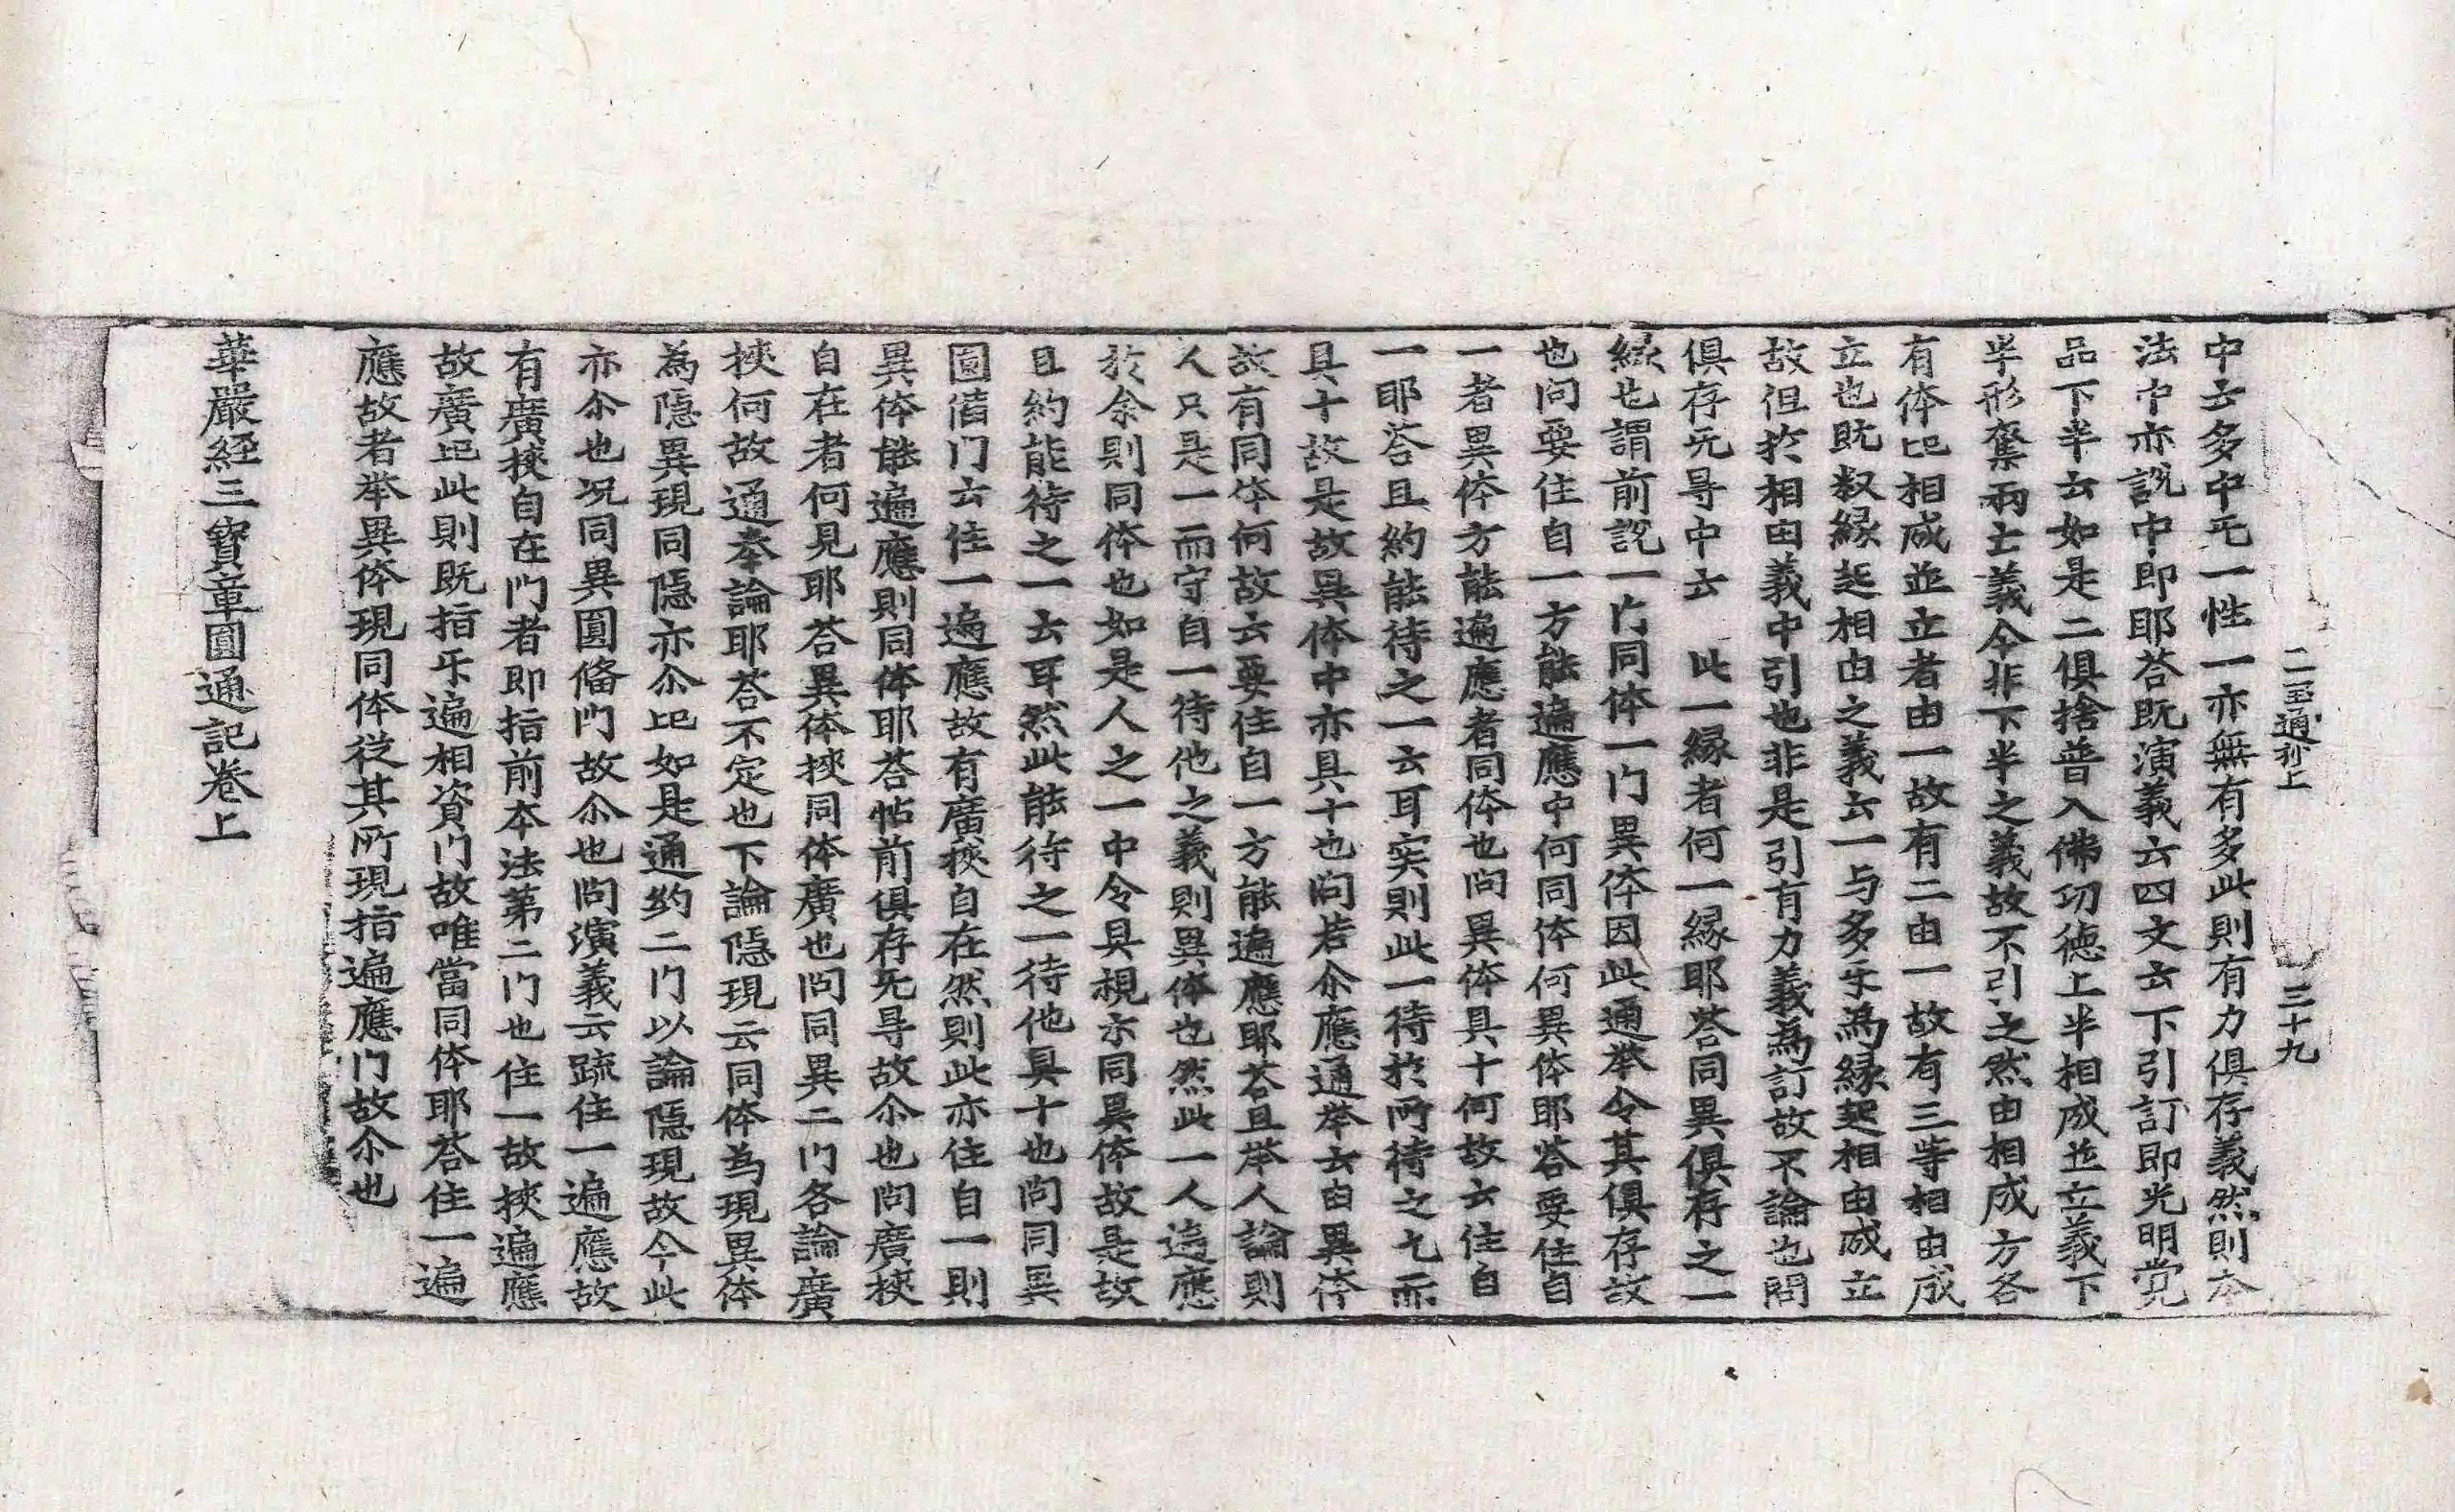 二宝通抄上　三十九
中云多中无一性一亦無有多此則有力俱存義然則本
法中亦說中即耶荅既演義云四文云下引訂即光明党
品下半云如是二俱捨普入佛㓛德上半相成並立義下
半形奪兩亡義今非下半之義故不引之然由相成方各
有体比相成並立者由一故有二由一故有三等相由成
立也既叙緣起相由之義云一与多乐為緣起相由成立
故但扵相由義中引也非是引有力義為訂故不論也問
俱存无㝵中云　此一緣者何一緣耶荅同異俱存之一
緣也謂前說一门同体一门異体因此通举令其俱存故
也问要住自一方能遍應中何同体何異体耶荅要住自
一者異体方能遍應者同体也问異体具十何故云住自
一耶荅且約能待之一云耳实則此一待扵所待之七而
具十故是故異体中亦具十也问若尒應通举云由異体
故有同体何故云要住自一方能遍應耶荅且举人論則
人只是一而守自一待他之義則異体也然此一人遍應
扵余則同体也如是人之一中令具視亦同異体故是故
且約能待之一云耳然此能待之一待他具十也问同異
圓俻门云住一遍應故有廣挾自在然則此亦住自一則
異体能遍應則同体耶荅帖前俱存无㝵故尒也问廣挾
自在者何見耶荅異体挾同体廣也问同異二门各論廣
挾何故通奉論耶荅不定也下論隱現云同体為現異体
為隱異現同隱亦尒比如是通約二门以論隱現故今此
亦尒也况同異圓俻门故尒也问演義云疏住一遍應故
有廣挾自在门者即指前本法第二门也住一故挾遍應
故廣比此則既指乐遍相資门故唯當同体耶荅住一遍
應故者举異体現同体從其所現指遍應门故尒也
華嚴經三寶章圓通記卷上